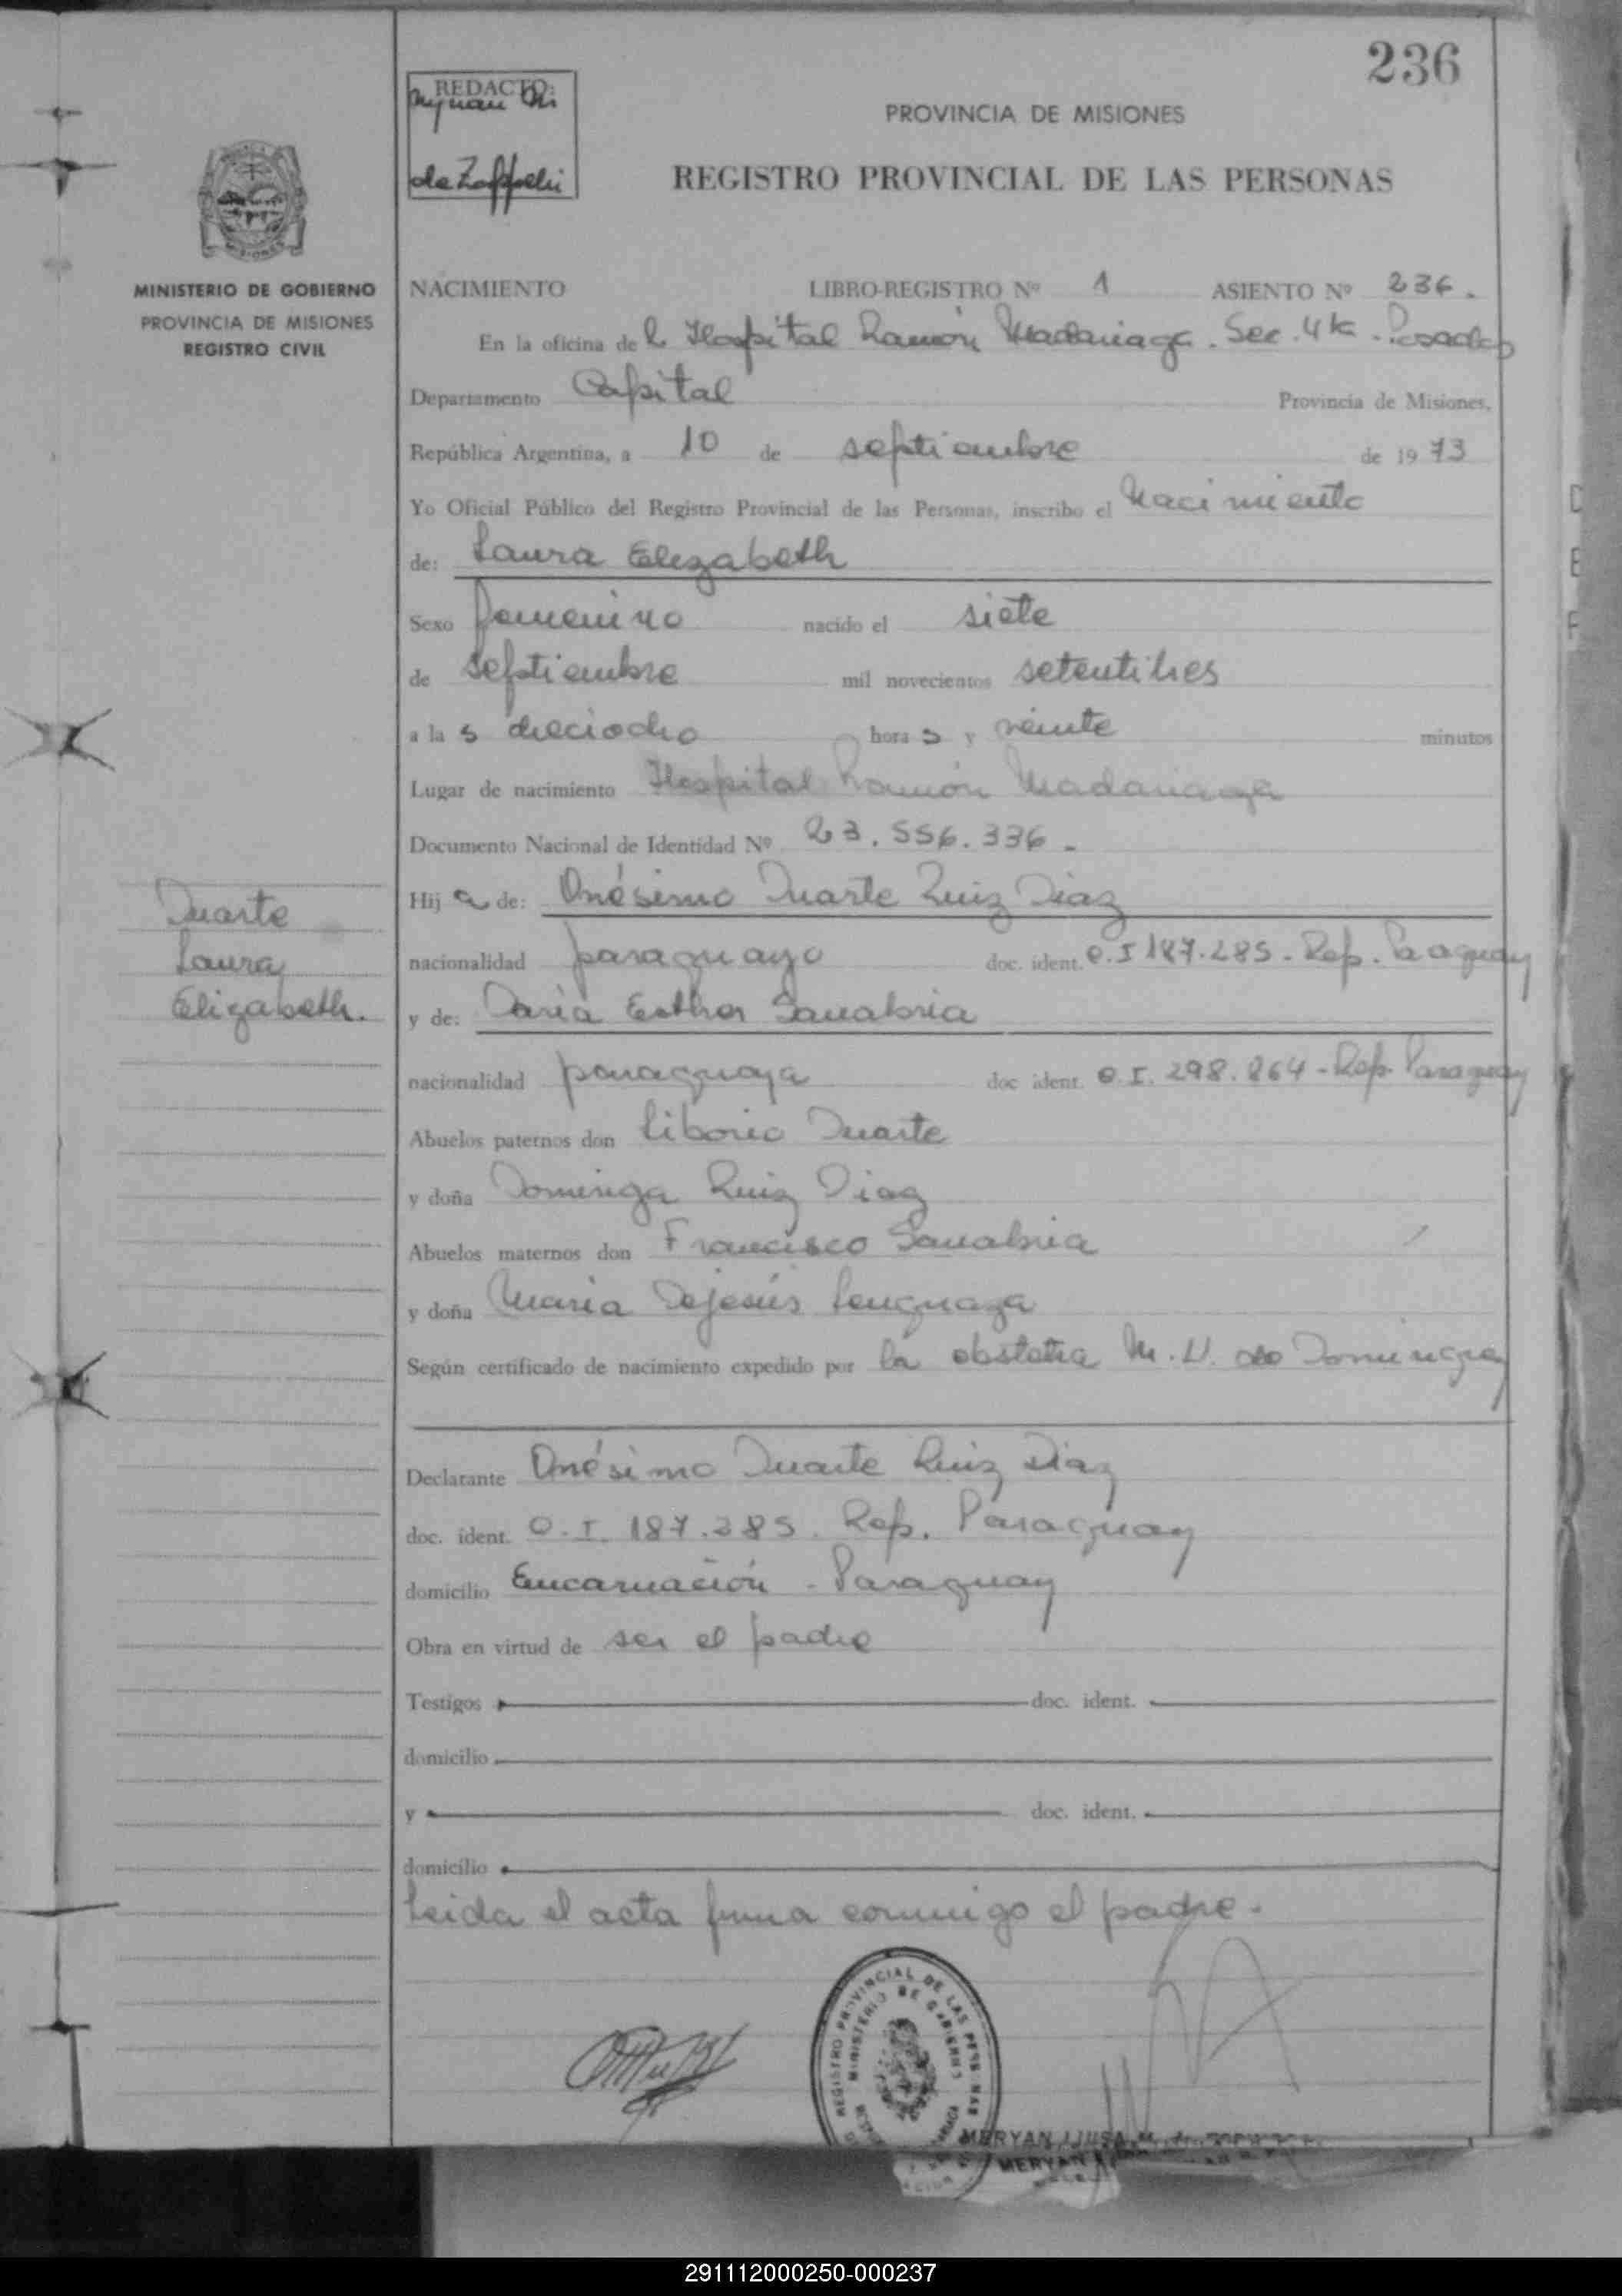 236
REDACTO:
de Zoppelli
PROVINCIA DE MISIONES
REGISTRO PROVINCIAL DE LAS PERSONAS
MINISTERIO DE GOBIERNO
PROVINCIA DE MISIONES
REGISTRO CIVIL
NACIMIENTO LIBRO-REGISTRO Nº 1 ASIENTO Nº 236.
En la oficina de l Hospital Ramón Madariaga. Sec. 4ta - Posadas
Departamento Capital Provincia de Misiones,
República Argentina, a 10 de septiembre de 1973
Yo Oficial Público del Registro Provincial de las Personas, inscribo el Nacimiento
de: Laura Elizabeth
Sexo femenino nacido el siete
de septiembre mil novecientos setentitres
a la s dieciocho hora s y veinte minutos
Lugar de nacimiento Hospital Ramón Madariaga
Documento Nacional de Identidad Nº 23.556.336.-
Hij a de: Onésimo Duarte Ruiz Diaz
nacionalidad paraguayo doc. ident. C.I 187.285 - Rep. Paraguay
y de: Daria Esther Sanabria
nacionalidad paraguaya doc ident. C.I. 298.864 - Rep. Paraguay
Abuelos paternos don Liborio Duarte
y doña Dominga Ruiz Diaz
Abuelos maternos don Francisco Sanabria
y doña María Dejesús Lenguaza
Según certificado de nacimiento expedido por la obstetra M. V. de Dominguez
Duarte
Laura
Elizabeth.
Declarante Onésimo Duarte Ruiz Diaz
doc. ident. C.I. 187.285. Rep. Paraguay
domicilio Encarnación - Paraguay
Obra en virtud de ser el padre
Testigos doc. ident.
domicilio
y doc. ident.
domicilio
Leida el acta firma conmigo el padre.
REGISTRO PROVINCIAL DE LAS PERSONAS
MINISTERIO DE GOBIERNO
MERYAN LUISA
MERYAN
291112000250-000237